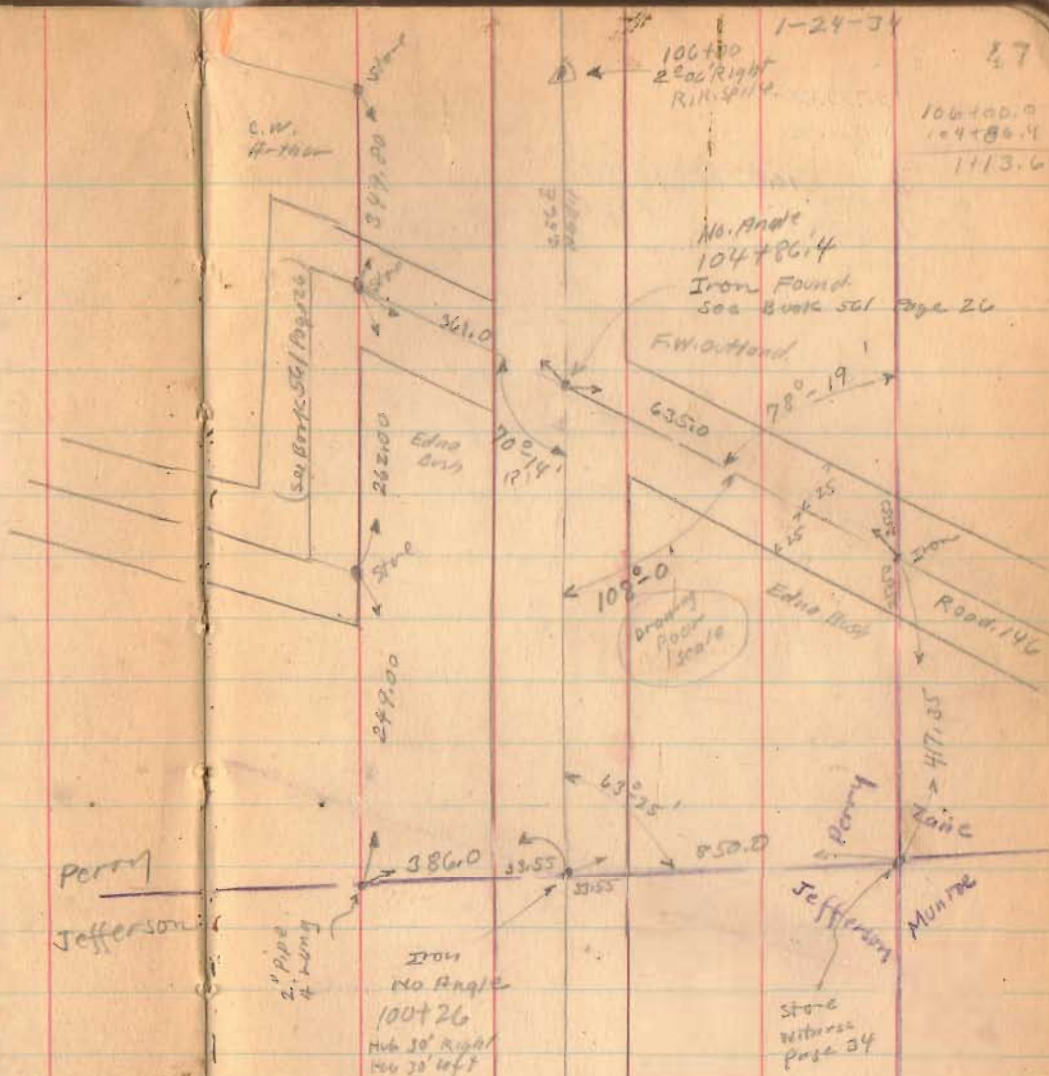 1-24-34
47
106+00
2°06' Right
R.R. Spike
106+00.0
104+86.4
1+13.6
C.W.
Arthur
Stone
349.00
No. Angle
104+86.4
Iron Found
See Book 561 Page 26
F.W. Outland
(see Book 561 Page 26
361.0
635.0
78°-19'
Edna
Bush
70°-14'
262.00
25
25
Iron
Stone
108°-0'
Drawing
Poor
scale
Edna Bush
Road 146
249.00
417.35
63°25'
Perry
Zane
Perry
386.0
33.55
33.55
850.0
Jefferson
Jefferson
Munroe
2" Pipe
4' Long
Iron
No Angle
100+26
Hub 30' Right
Hub 30' Left
Stone
Witness
Page 34